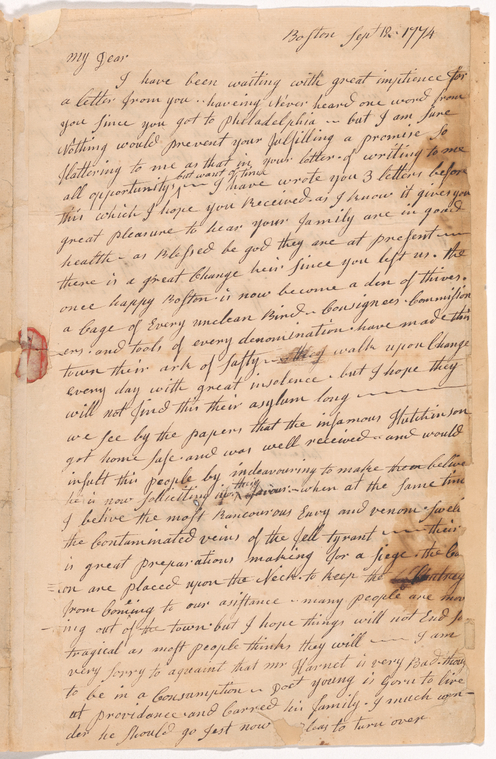 Boston Sept 12. 1774
My Dear
I have been waiting with great imptience for
a letter from you - haveing Never heard one word from
you Since you got to Philadelphia - but I am Sure
Nothing would prevent your fulfilling a promise So
flattering to me as that in your letter of writing to me
but want of time
all opportunity, I have wrote you 3 letters before
this which I hope you Received as I know it gives you
great pleasure to hear your family are in good
health - as Blessed be god they are at present
there is a great Change heir Since you left us. the
once happy Boston is now become a den of thives.
a Cage of Every unclean Bird - Consignees - Commision
ers. and tools of every denomination. have made this
town their ark of Safty - walk upon Change
every day with great insolence. but I hope they
will not find this their asylum long
we See by the papers that the infamous Hutchinson
got home Safe - and was well received - and would
insult this people by indeavouring to make them belive
he is now Solliciting in their faviour. - when at the Same time
I belive the most Rancourous Envy and venom Swels
the Contaminated veins of the fell tyrant - their
is great preparations making for a Siege - the Ca
on are placed upon the Neck to keep the Contrey
from Coming to our asistance - many people are mov
ing out of the town but I hope things will not End So
tragical as most people thinks they will - I am
very Sorry to aquaint that mr is very Bad. thoug
to be in a Consumption - Doct young is Gorn to live
at Providance and Carred his family. I much won
der he Should go Jest now pleas to turn over